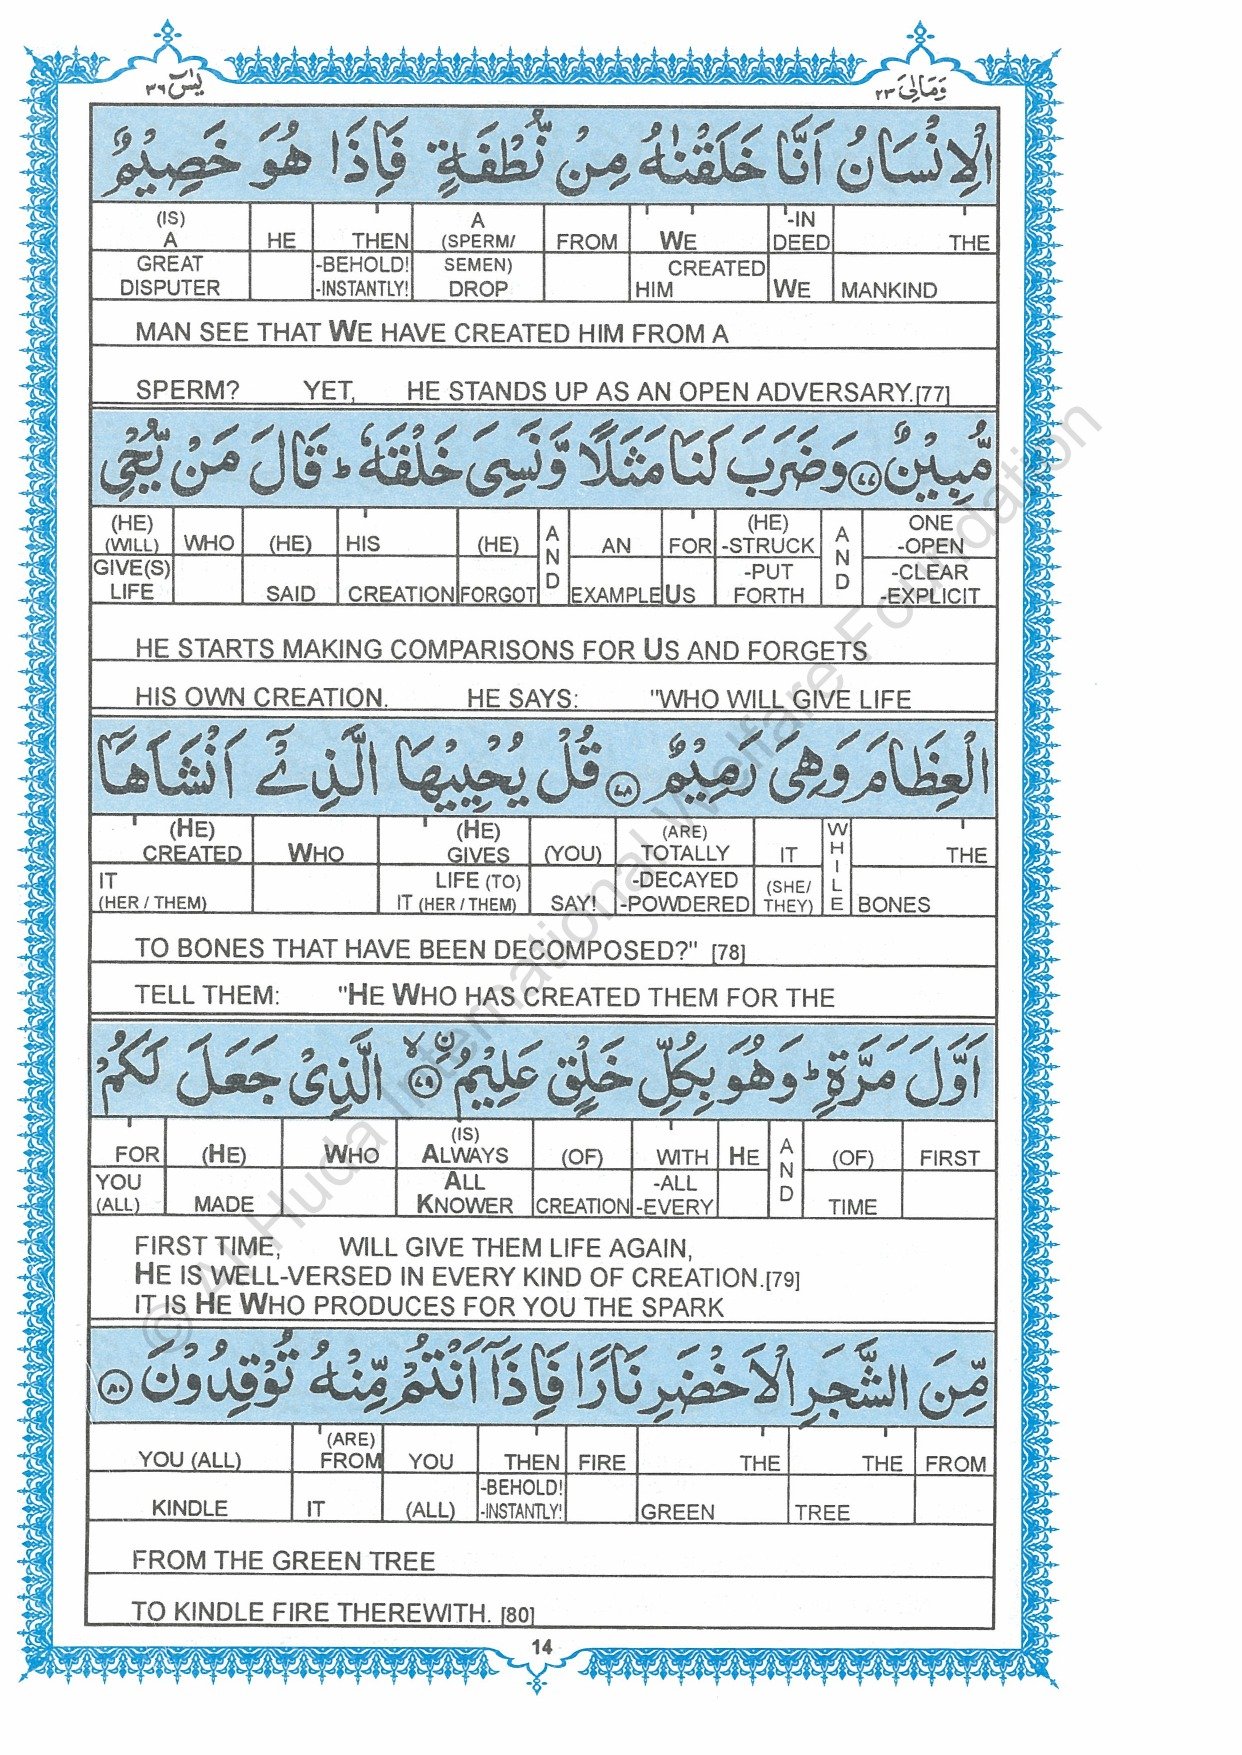 يٰسٓ ٣٦
وَمَالِىَ ٢٣
الْاِنْسَانُ اَنَّا خَلَقْنٰهُ مِنْ نُّطْفَةٍ فَاِذَا هُوَ خَصِيْمٌ
(IS) A HE THEN A (SPERM/ FROM WE -IN DEED THE
GREAT DISPUTER -BEHOLD! -INSTANTLY! SEMEN) DROP CREATED HIM WE MANKIND
MAN SEE THAT WE HAVE CREATED HIM FROM A
SPERM? YET, HE STANDS UP AS AN OPEN ADVERSARY.[77]
مُّبِيْنٌ ٧٧ وَضَرَبَ لَنَا مَثَلًا وَّنَسِىَ خَلْقَهٗ ؕ قَالَ مَنْ يُّحْىِ
(HE) (WILL) WHO (HE) HIS (HE) AND AN FOR (HE) -STRUCK AND ONE -OPEN
GIVE(S) LIFE SAID CREATION FORGOT EXAMPLE US -PUT FORTH -CLEAR -EXPLICIT
HE STARTS MAKING COMPARISONS FOR US AND FORGETS
HIS OWN CREATION. HE SAYS: "WHO WILL GIVE LIFE
الْعِظَامَ وَهِىَ رَمِيْمٌ ٧٨ قُلْ يُحْيِيْهَا الَّذِىْٓ اَنْشَاَهَآ
(HE) CREATED WHO (HE) GIVES (YOU) (ARE) TOTALLY IT WHILE THE
IT (HER / THEM) LIFE (TO) IT (HER / THEM) SAY! -DECAYED -POWDERED (SHE/ THEY) BONES
TO BONES THAT HAVE BEEN DECOMPOSED?" [78]
TELL THEM: "HE WHO HAS CREATED THEM FOR THE
اَوَّلَ مَرَّةٍ ؕ وَهُوَ بِكُلِّ خَلْقٍ عَلِيْمُ ۨ ۙ ٧٩ الَّذِىْ جَعَلَ لَكُمْ
FOR (HE) WHO (IS) ALWAYS (OF) WITH HE AND (OF) FIRST
YOU (ALL) MADE ALL KNOWER CREATION -ALL -EVERY TIME
FIRST TIME, WILL GIVE THEM LIFE AGAIN,
HE IS WELL-VERSED IN EVERY KIND OF CREATION.[79]
IT IS HE WHO PRODUCES FOR YOU THE SPARK
مِّنَ الشَّجَرِ الْاَخْضَرِ نَارًا فَاِذَآ اَنْتُمْ مِّنْهُ تُوْقِدُوْنَ ٨٠
YOU (ALL) (ARE) FROM YOU THEN FIRE THE THE FROM
KINDLE IT (ALL) -BEHOLD! -INSTANTLY! GREEN TREE
FROM THE GREEN TREE
TO KINDLE FIRE THEREWITH. [80]
14
© Al-Huda International Welfare Foundation